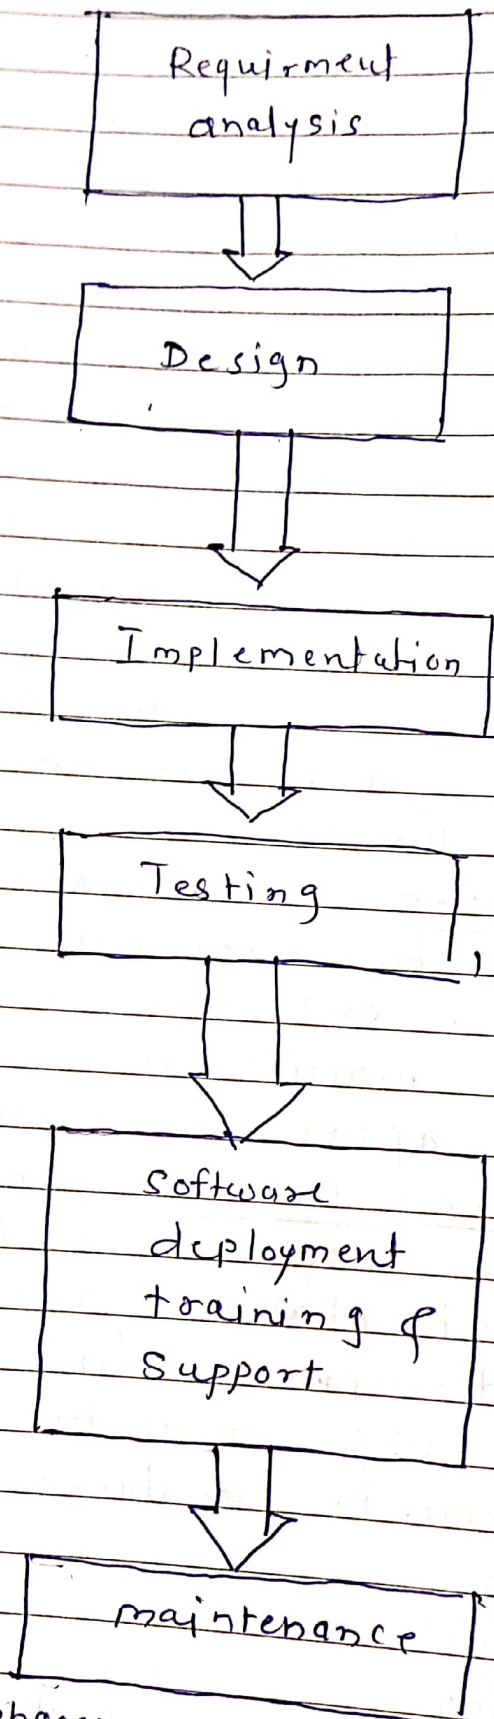 Requirment
analysis
Design
Implementation
Testing
Software
deployment
training &
Support
maintenance